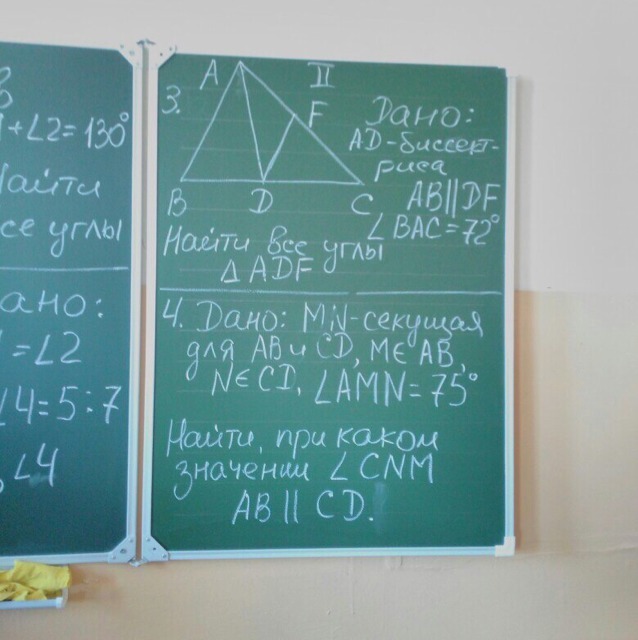 +∠2=130°
Найти
все углы
Дано:
=∠2
∠4=5:7
∠4
II
3.
A
F
B
D
C
Дано:
AD-биссект-
риса
AB||DF
∠BAC=72°
Найти все углы
△ADF
4. Дано: MN-секущая
для AB и CD, M∈AB,
N∈CD, ∠AMN=75°
Найти, при каком
значении ∠CNM
AB || CD.